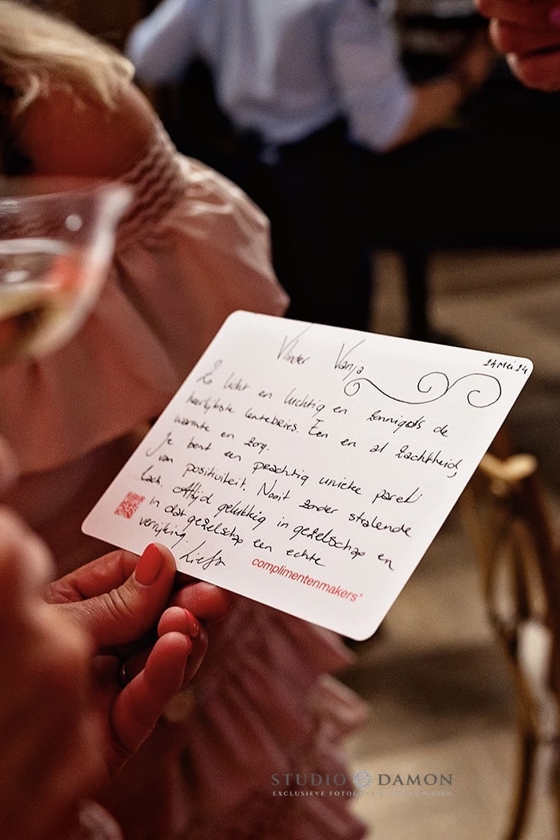 Vlinder Vanja
14 Mei 14
Zo licht en luchtig en zonnig als de
heerlijkste lentebries. Een en al zachtheid,
warmte en zorg.
Je bent een prachtig unieke parel
van positiviteit. Nooit zonder stralende
lach. Altijd gelukkig in gezelschap en
in dat gezelschap een echte
verrijking. Liefs
complimentenmakers
STUDIO DAMON
EXCLUSIEVE